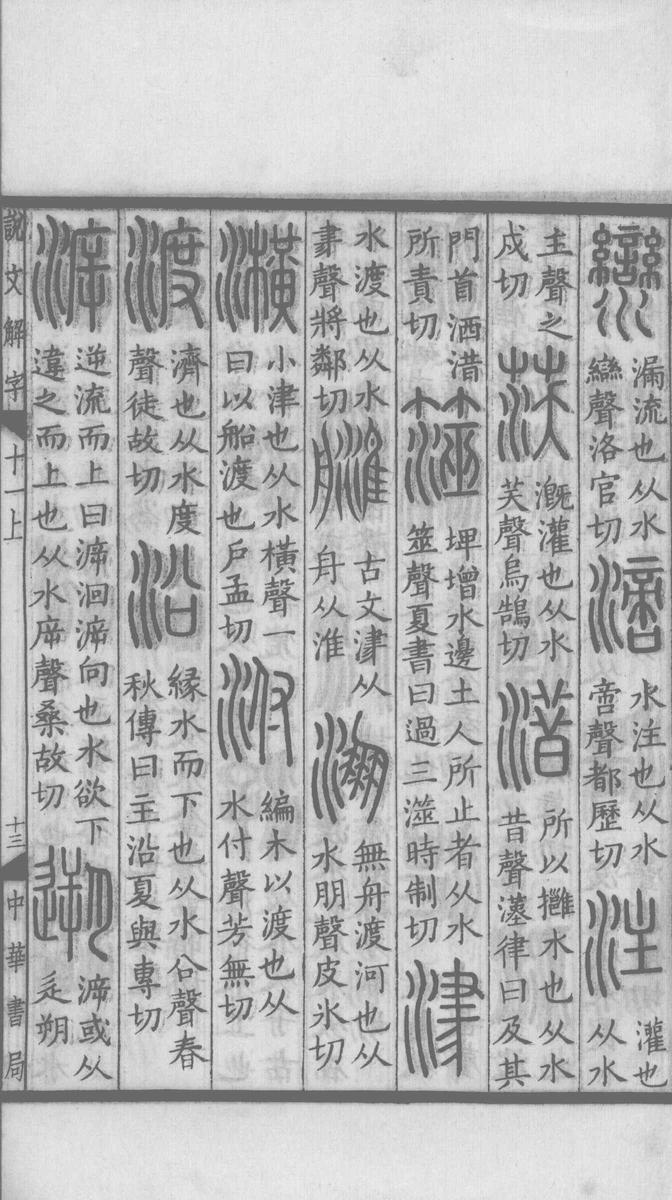 灓
漏流也从水
䜌聲洛官切
滴
水注也从水
啻聲都歷切
注
灌也
从水
主聲之
戍切
溉灌也从水
芺聲烏鵠切
所以擁水也从水
昔聲漢律曰及其
門首洒
所責切
澨
埤增水邊土人所止者从水
筮聲夏書曰過三澨時制切
津
水渡也从水
𦘔聲將鄰切
𦩻
古文津从
舟从淮
淜
無舟渡河也从
水朋聲皮氷切
小津也从水橫聲一
曰以船渡也戶孟切
泭
編木以渡也从
水付聲芳無切
渡
濟也从水度
聲徒故切
沿
緣水而下也从水㕣聲春
秋傳曰王沿夏與專切
㴑
逆流而上曰㴑洄㴑向也水欲下
違之而上也从水㡿聲桑故切
遡
㴑或从
辵朔
說文解字
十一上
十三
中華書局